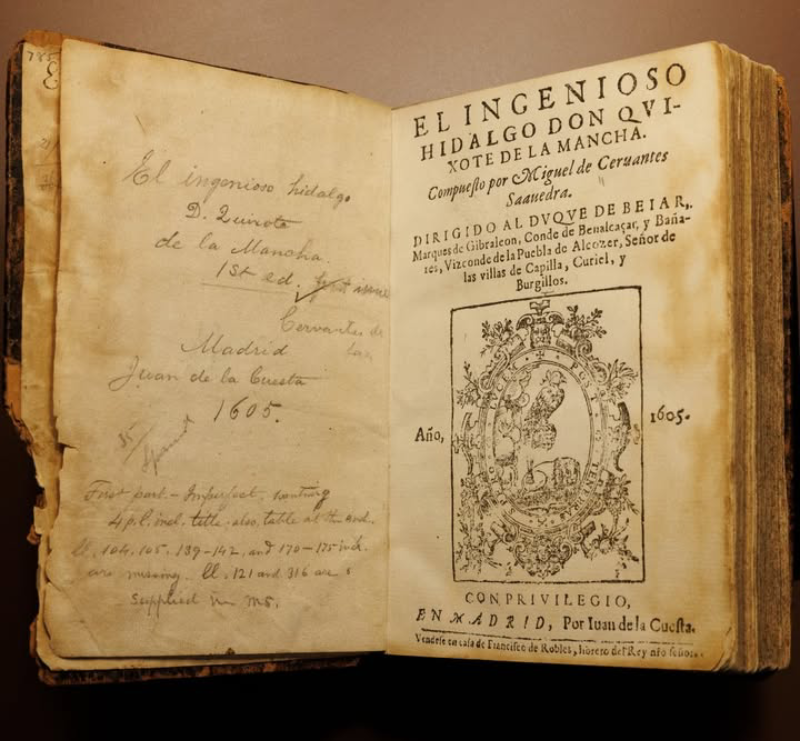 785
El ingenioso hidalgo
D. Quixote
de la Mancha.
1st ed. first issue
Cervantes de
Madrid
Juan de la Cuesta
1605.
First part. - Imperfect, wanting
4 p. l. incl. title, also table at the end.
ll. 104, 105, 139-142, and 170-175 incl.
are missing. ll. 121 and 316 are
supplied in ms.
EL INGENIOSO
HIDALGO DON QVI-
XOTE DE LA MANCHA.
Compuesto por Miguel de Ceruantes
Saauedra.
DIRIGIDO AL DVQVE DE BEIAR,
Marques de Gibraleon, Conde de Benalcaçar, y Baña-
res, Vizconde de la Puebla de Alcozer, Señor de
las villas de Capilla, Curiel, y
Burgillos.
POST TE
Año, 1605.
CON PRIVILEGIO,
EN MADRID, Por Iuan de la Cuesta.
Vendese en casa de Francisco de Robles, librero del Rey nro señor.